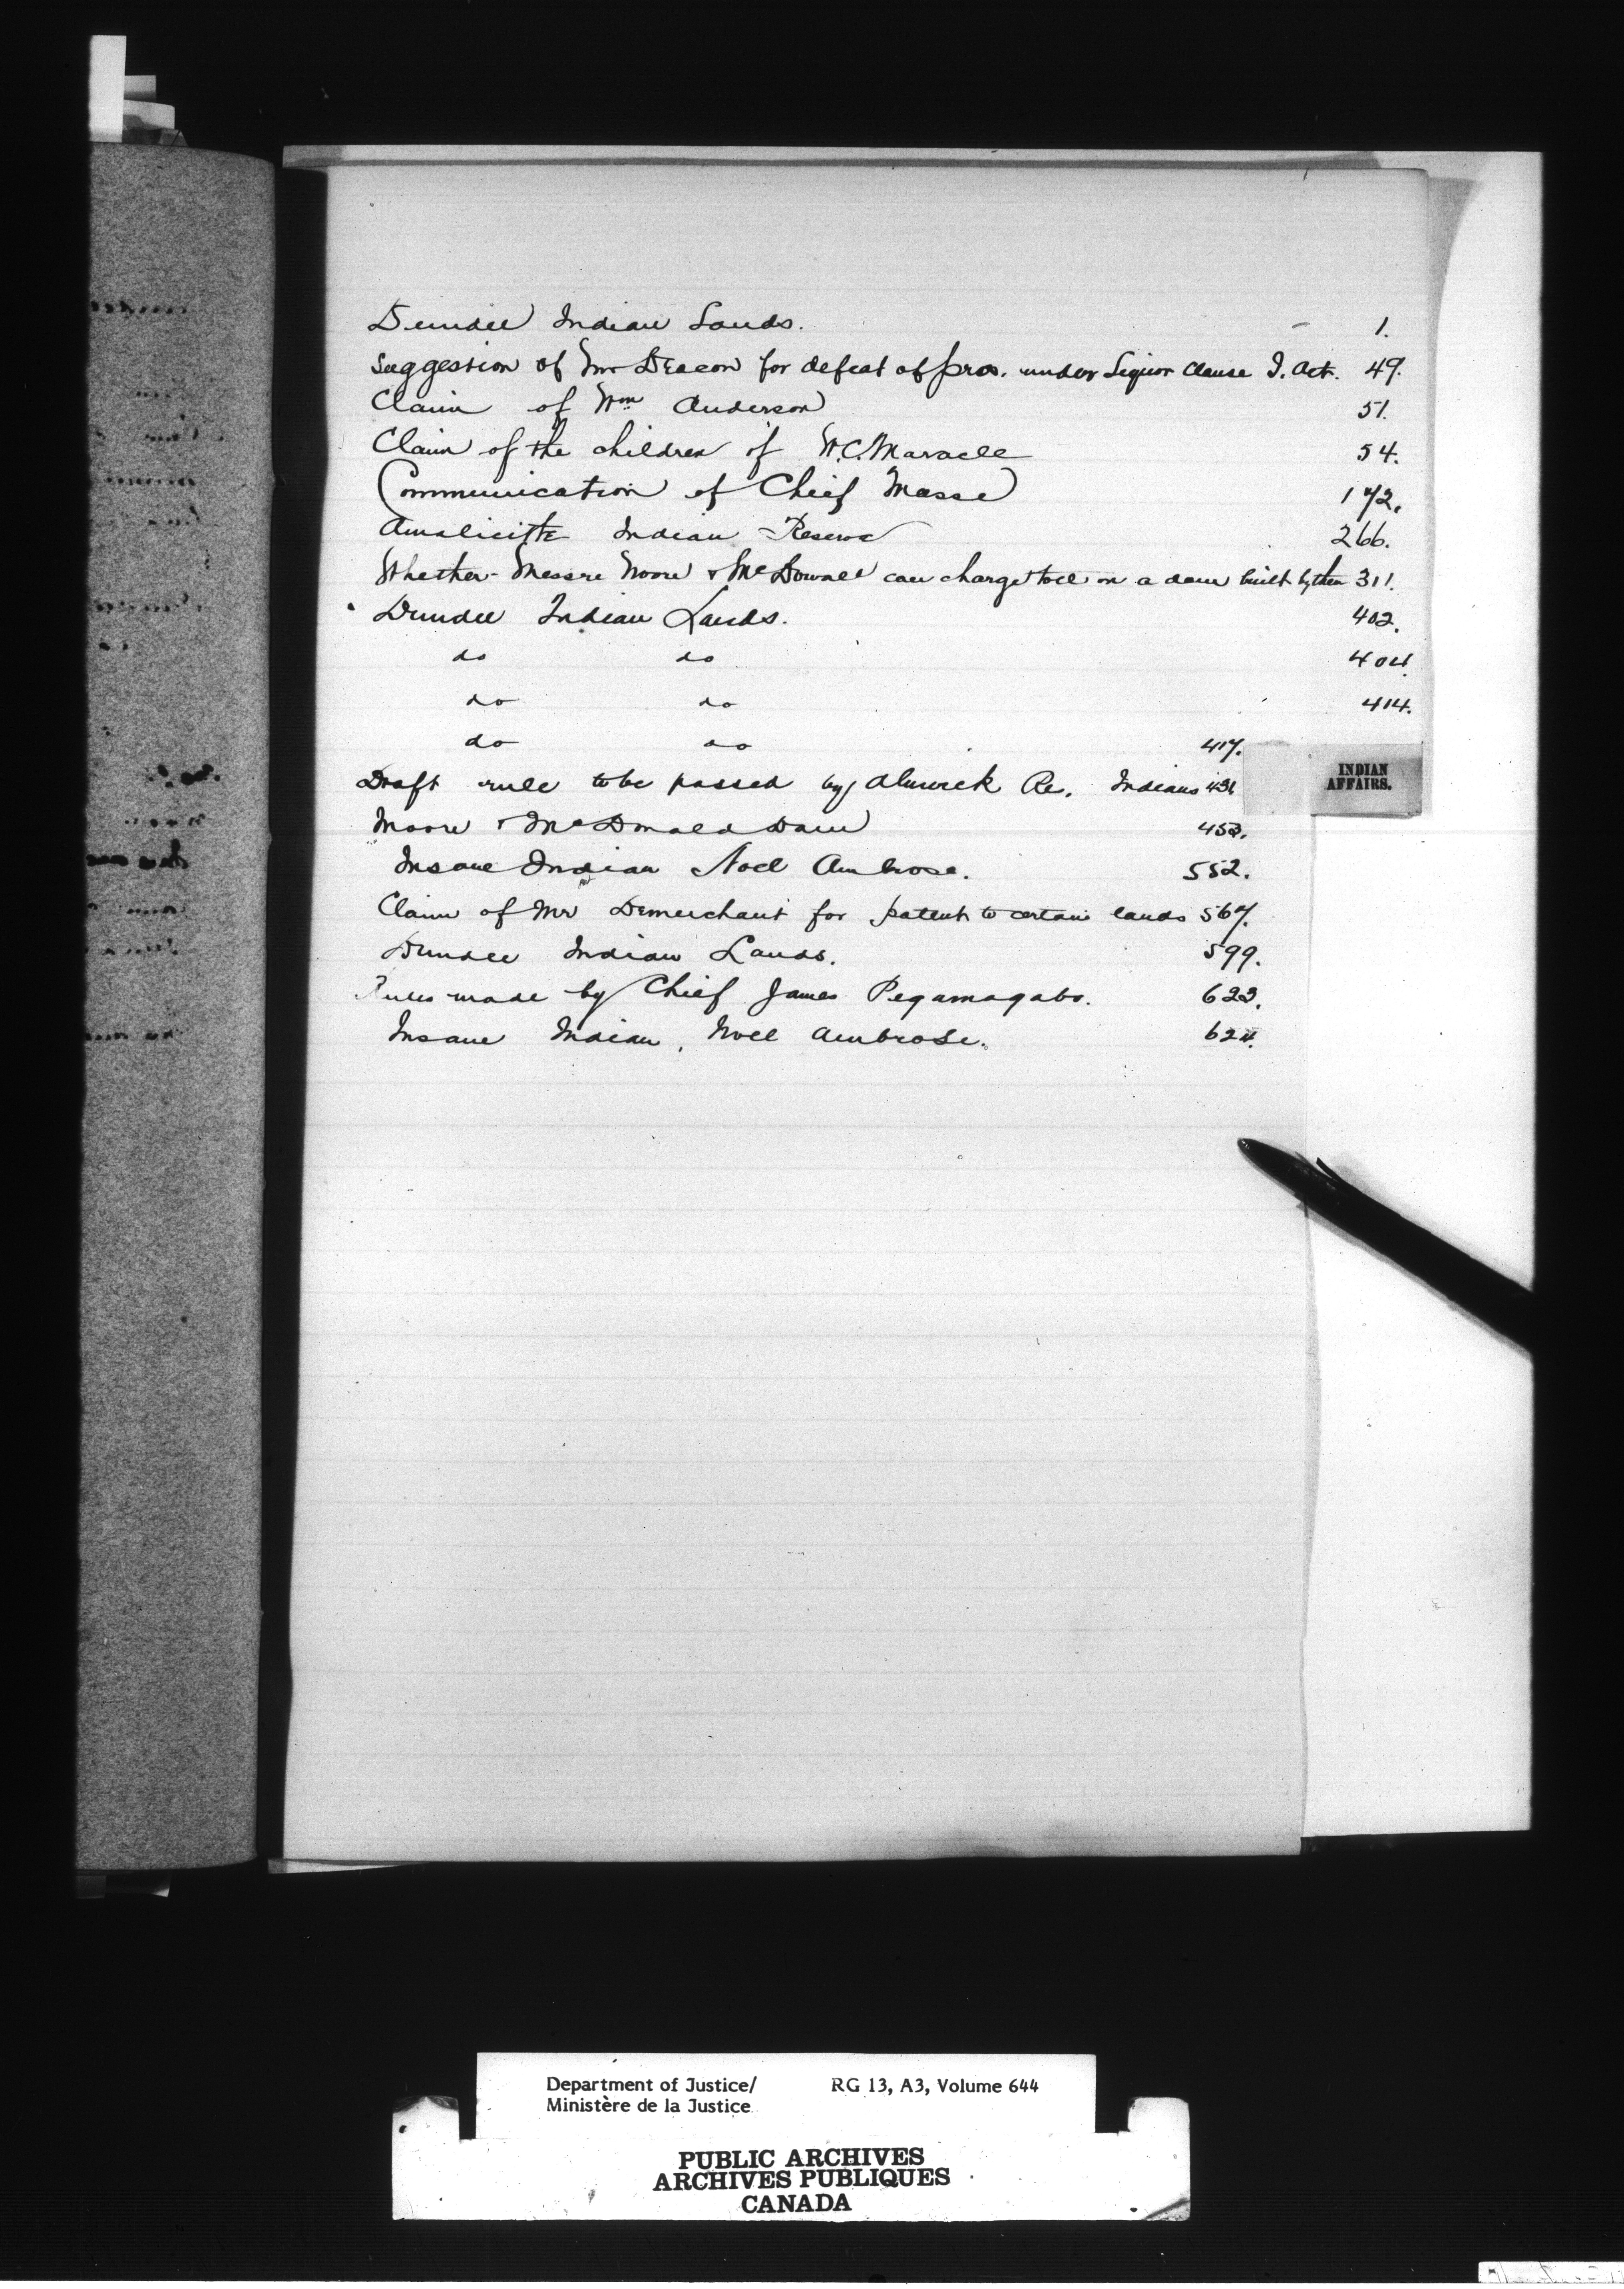 Dundee Indian Lands. 1.
Suggestion of Mr Deacon for defeat of pros. under Liquor Clause I. Act. 49.
Claim of Wm Anderson 51.
Claim of the children of W.C. Maracle 54.
Communication of Chief Masse 172.
Amalicite Indian Reserve 266.
Whether Messrs Moore & McDowall can charge toll on a dam built by them 311.
Dundee Indian Lands. 402.
do do 404.
do do 414.
do do 417.
INDIAN
AFFAIRS.
Draft rule to be passed by Alnwick Re. Indians 431
Moore & McDonald Dam 453.
Insane Indian Noel Ambrose. 552.
Claim of Mr Demerchant for patent to certain lands 567.
Dundee Indian Lands. 599.
Rules made by Chief James Pegamagabo. 623.
Insane Indian, Noel Ambrose. 624.
Department of Justice/ RG 13, A3, Volume 644
Ministère de la Justice
PUBLIC ARCHIVES
ARCHIVES PUBLIQUES
CANADA